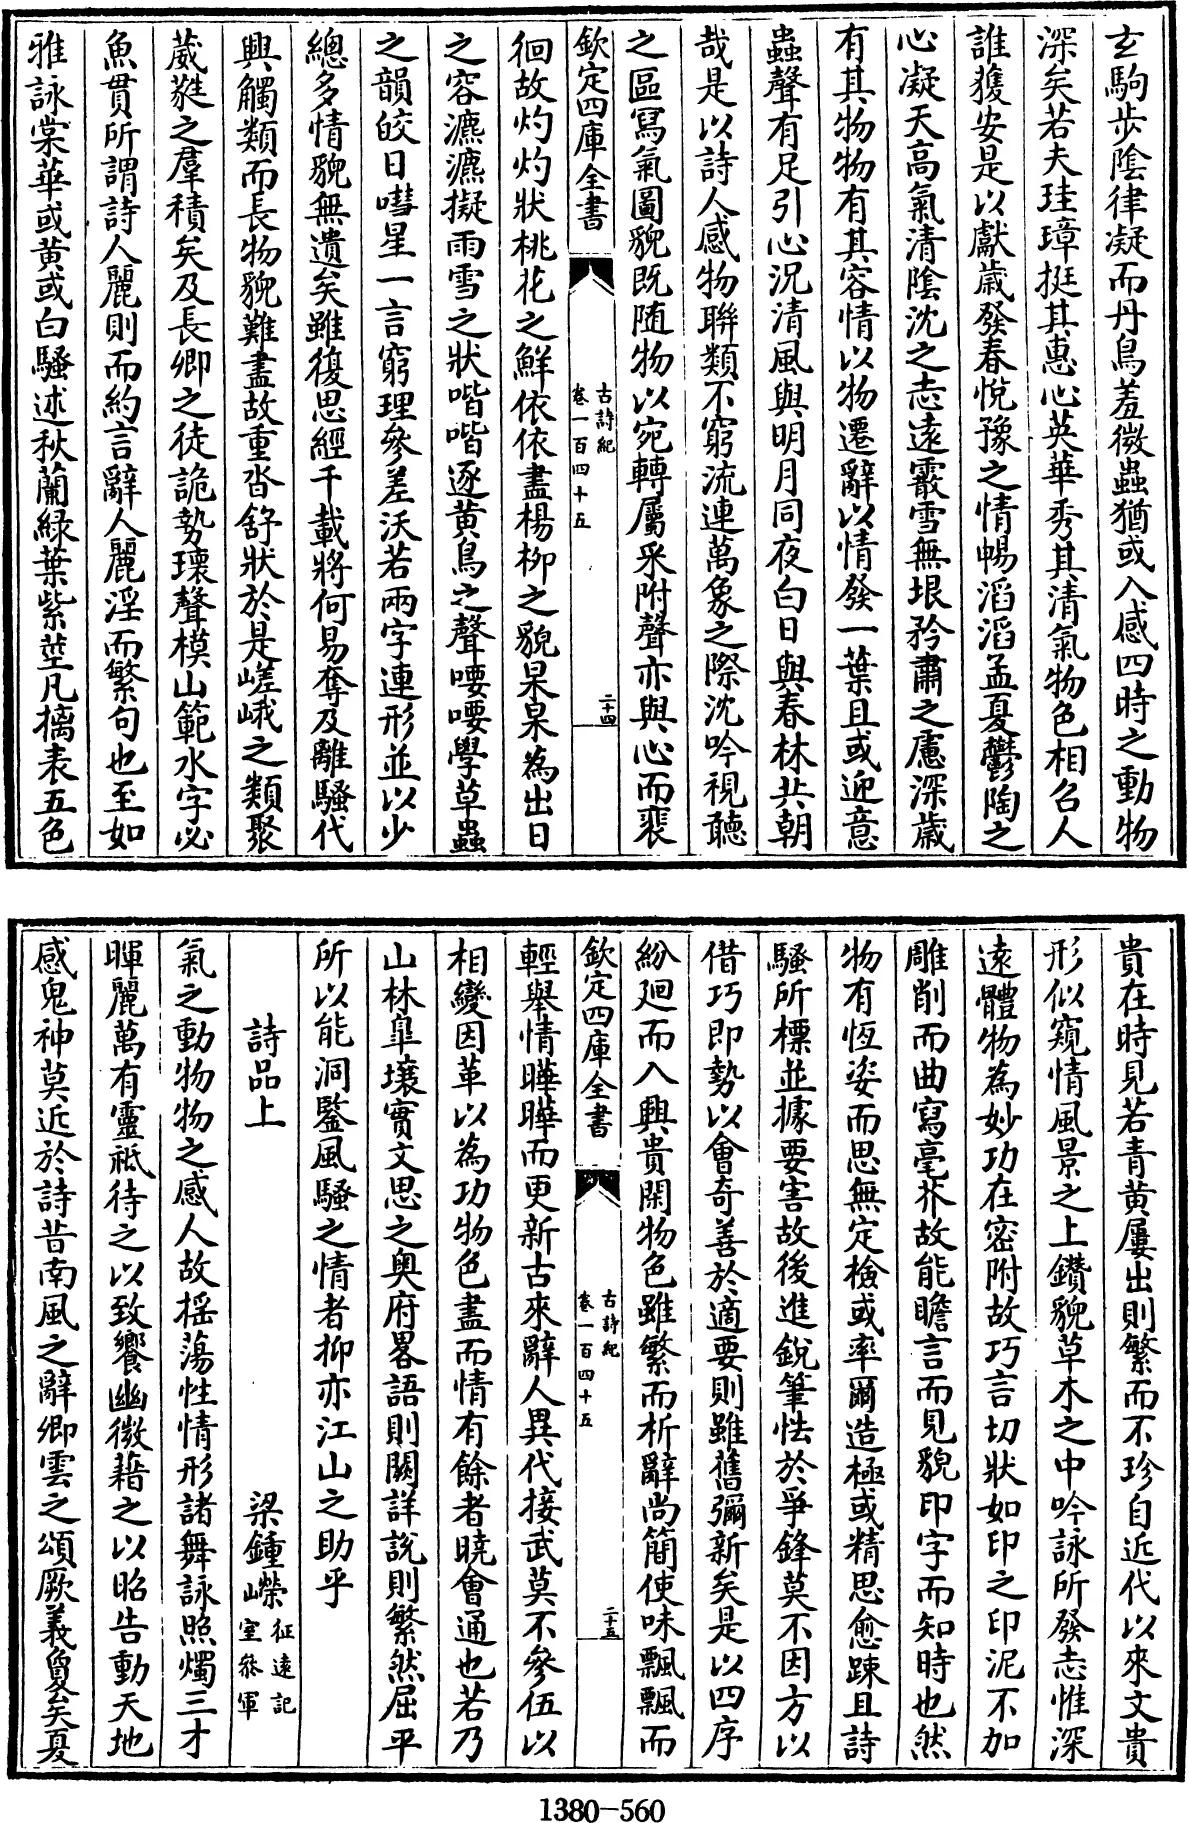 玄駒步陰律凝而丹鳥羞微蟲猶或入感四時之動物
深矣若夫珪璋挺其惠心英華秀其清氣物色相召人
誰獲安是以獻歲發春悅豫之情暢滔滔孟夏鬱陶之
心凝天高氣清陰沈之志遠霰雪無垠矜肅之慮深歲
有其物物有其容情以物遷辭以情發一葉且或迎意
蟲聲有足引心況清風與明月同夜白日與春林共朝
哉是以詩人感物聯類不窮流連萬象之際沈吟視聽
之區寫氣圖貌既随物以宛轉屬采附聲亦與心而裴
欽定四庫全書
古詩紀
卷一百四十五
二十四
徊故灼灼狀桃花之鮮依依盡楊柳之貌杲杲為出日
之容瀌瀌擬雨雪之狀喈喈逐黄鳥之聲喓喓學草蟲
之韻皎日嘒星一言窮理參差沃若兩字連形並以少
總多情貌無遺矣雖復思經千載將何易奪及離騷代
興觸類而長物貌難盡故重沓舒狀於是嵯峨之類聚
葳蕤之羣積矣及長卿之徒詭勢瓌聲模山範水字必
魚貫所謂詩人麗則而約言辭人麗淫而繁句也至如
雅詠棠華或黄或白騷述秋蘭緑葉紫莖凡摛表五色
貴在時見若青黄屢出則繁而不珍自近代以來文貴
形似窺情風景之上鑽貌草木之中吟詠所發志惟深
遠體物為妙功在密附故巧言切狀如印之印泥不加
雕削而曲寫毫芥故能瞻言而見貌印字而知時也然
物有恆姿而思無定檢或率爾造極或精思愈踈且詩
騷所標並據要害故後進銳筆怯於爭鋒莫不因方以
借巧即勢以會奇善於適要則雖舊彌新矣是以四序
紛迴而入興貴閑物色雖繁而析辭尚簡使味飄飄而
欽定四庫全書
古詩紀
卷一百四十五
二十五
輕舉情曄曄而更新古來辭人異代接武莫不參伍以
相變因革以為功物色盡而情有餘者曉會通也若乃
山林臯壤實文思之奥府畧語則闕詳說則繁然屈平
所以能洞鑒風騷之情者抑亦江山之助乎
詩品上 梁鍾嶸征遠記室叅軍
氣之動物物之感人故揺蕩性情形諸舞詠照燭三才
暉麗萬有靈祗待之以致饗幽微藉之以昭告動天地
感鬼神莫近於詩昔南風之辭卿雲之頌厥義敻矣夏
1380-560